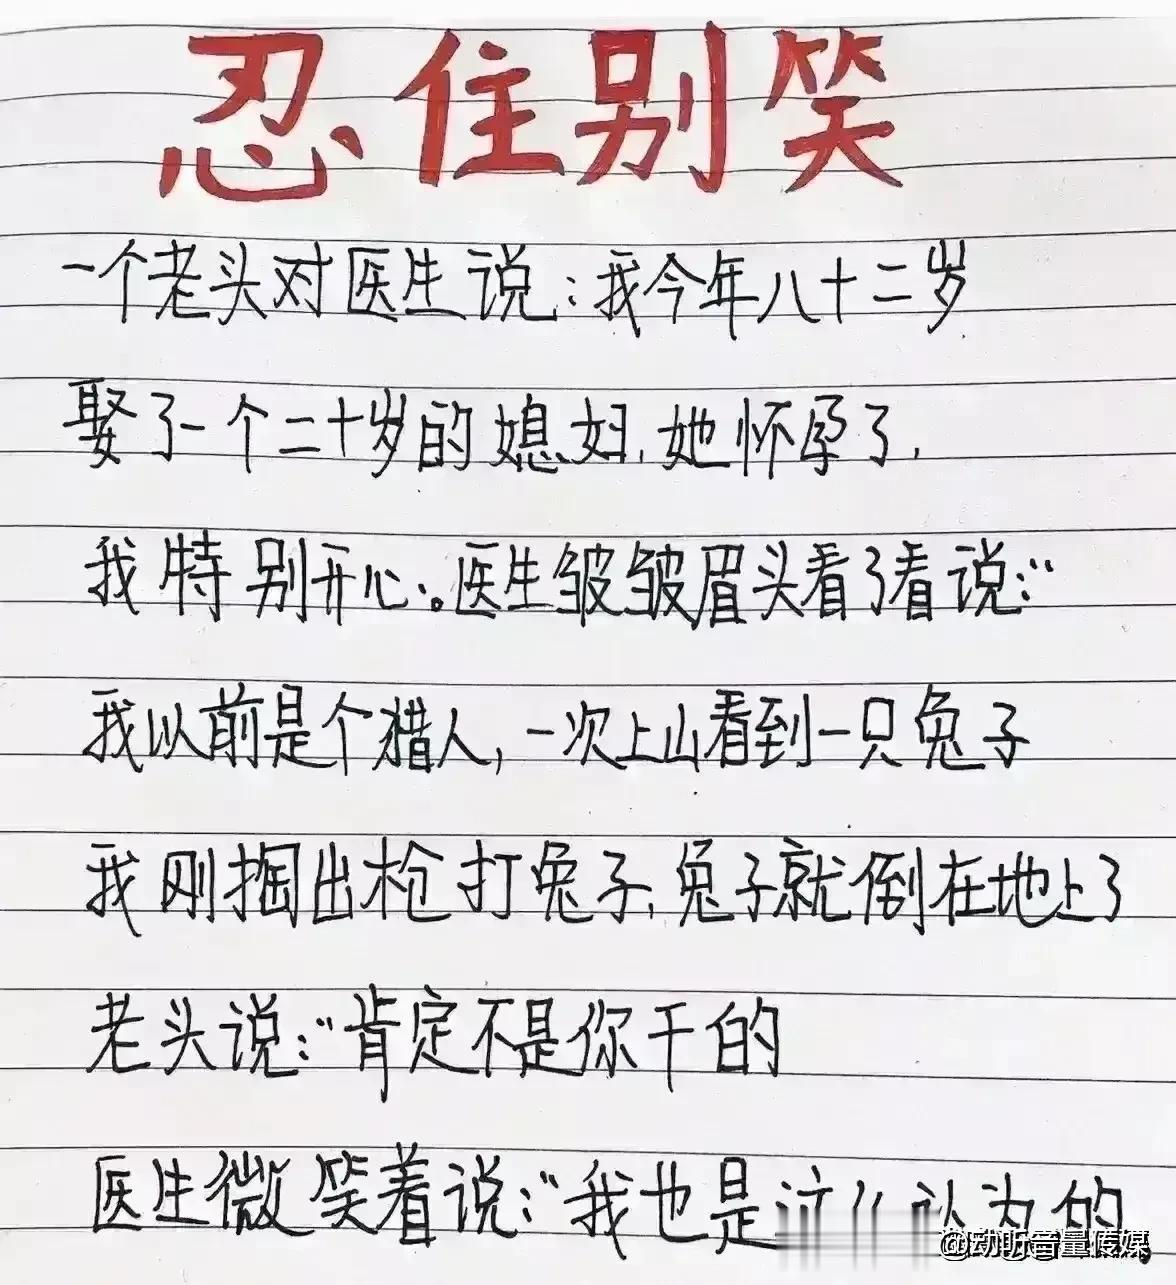 忍住别笑
一个老头对医生说：我今年八十二岁
娶了一个二十岁的媳妇，她怀孕了，
我特别开心。医生皱皱眉头看了看说：“
我以前是个猎人，一次上山看到一只兔子
我刚掏出枪打兔子，兔子就倒在地上了
老头说：“肯定不是你干的
医生微笑着说：“我也是这么认为的
@动听音量传媒